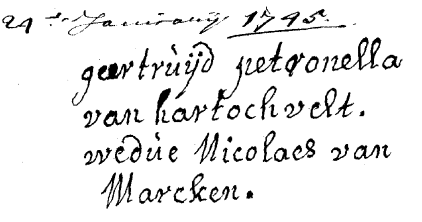 24 Januarij 1745.
geertruijd petronella
van hartochvelt.
wedùe Nicolaes van
Marcken.